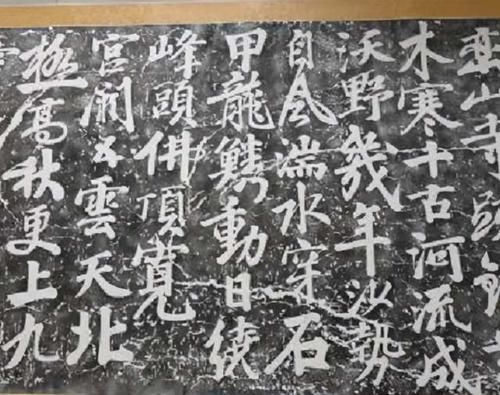 山寺疏鐘
木寒千古河流成
沃野幾年沙勢
自風湍水穿石
甲龍鱗動日繞
峰頭佛頂寬
宮闕五雲天北
極高秋更上九